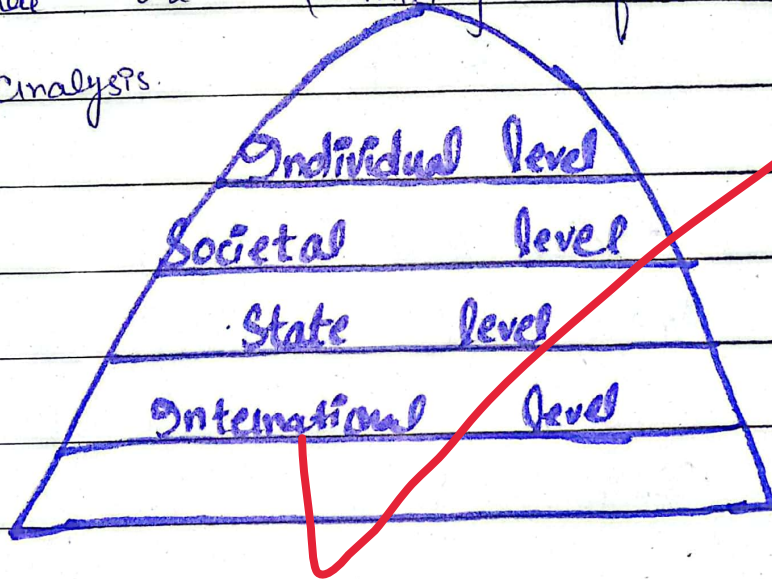 Analysis.
Individual level
Societal level
State level
International level